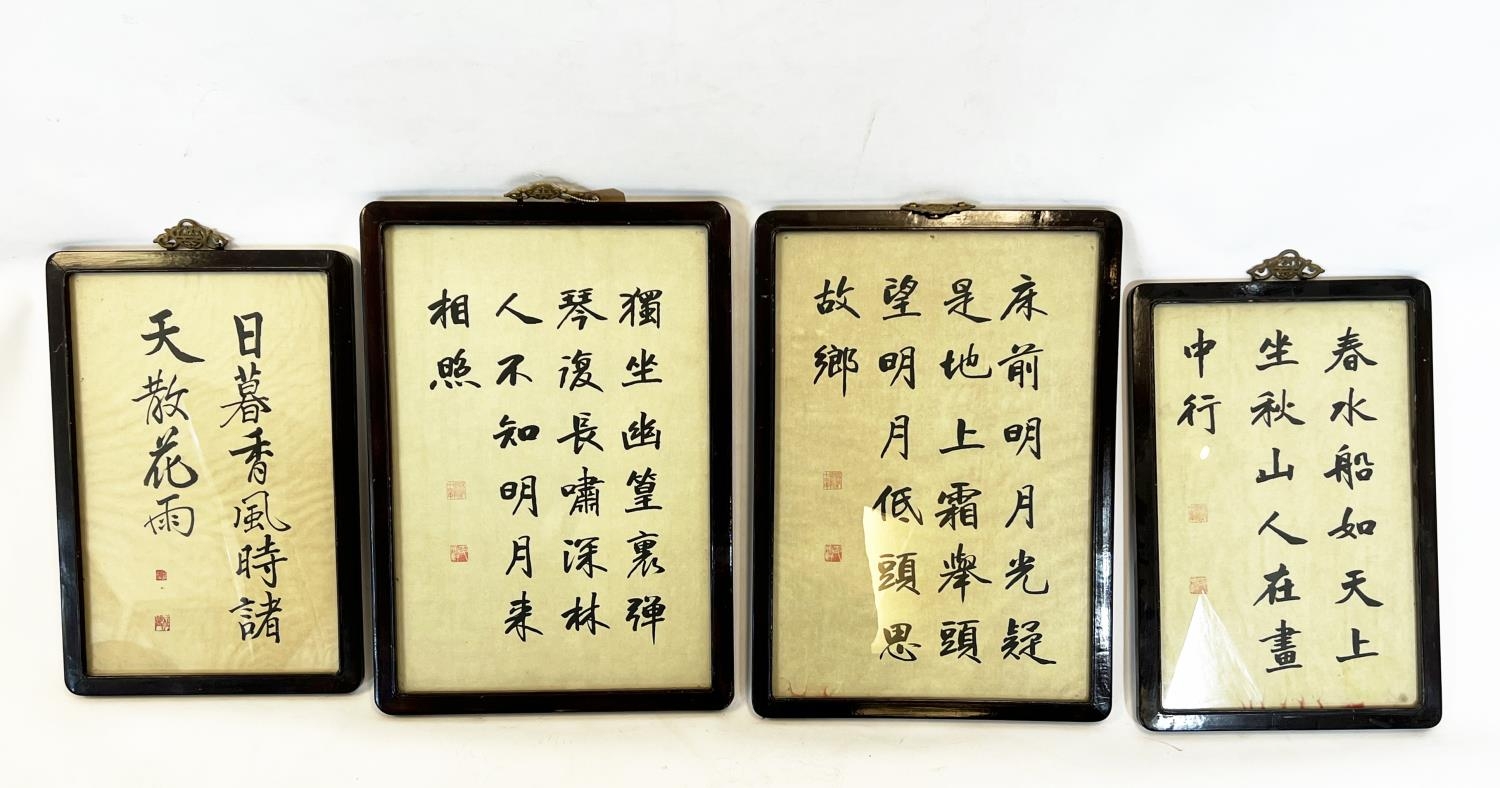 春水船如天上
坐秋山人在畫
中行
床前明月光疑
是地上霜舉頭
望明月低頭思
故鄉
獨坐幽篁裏弹
琴復長嘯深林
人不知明月来
相照
日暮香風時諸
天散花雨